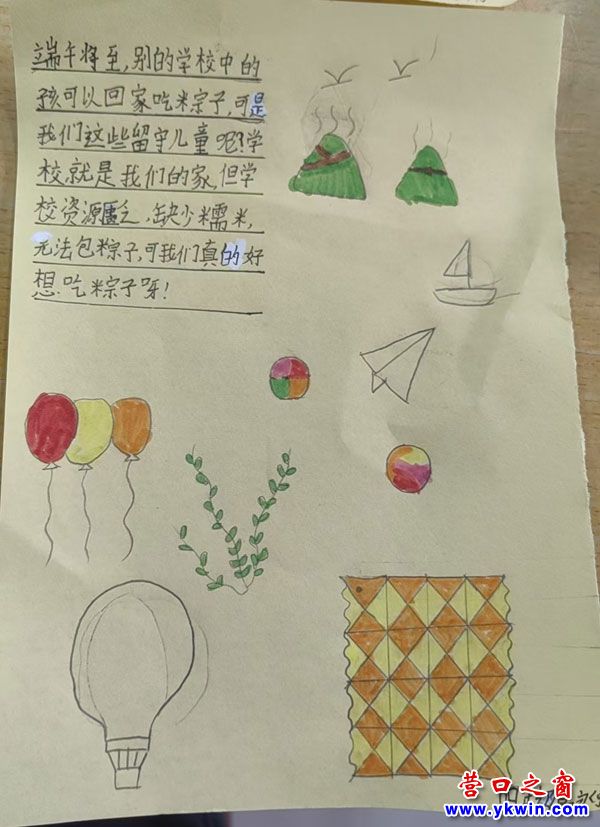 端午将至，别的学校中的
孩可以回家吃米粽子，可是
我们这些留守儿童呢？学
校就是我们的家，但学
校资源匮乏，缺少糯米，
无法包粽子，可我们真的好
想吃粽子呀！
营口之窗
www.ykwin.com